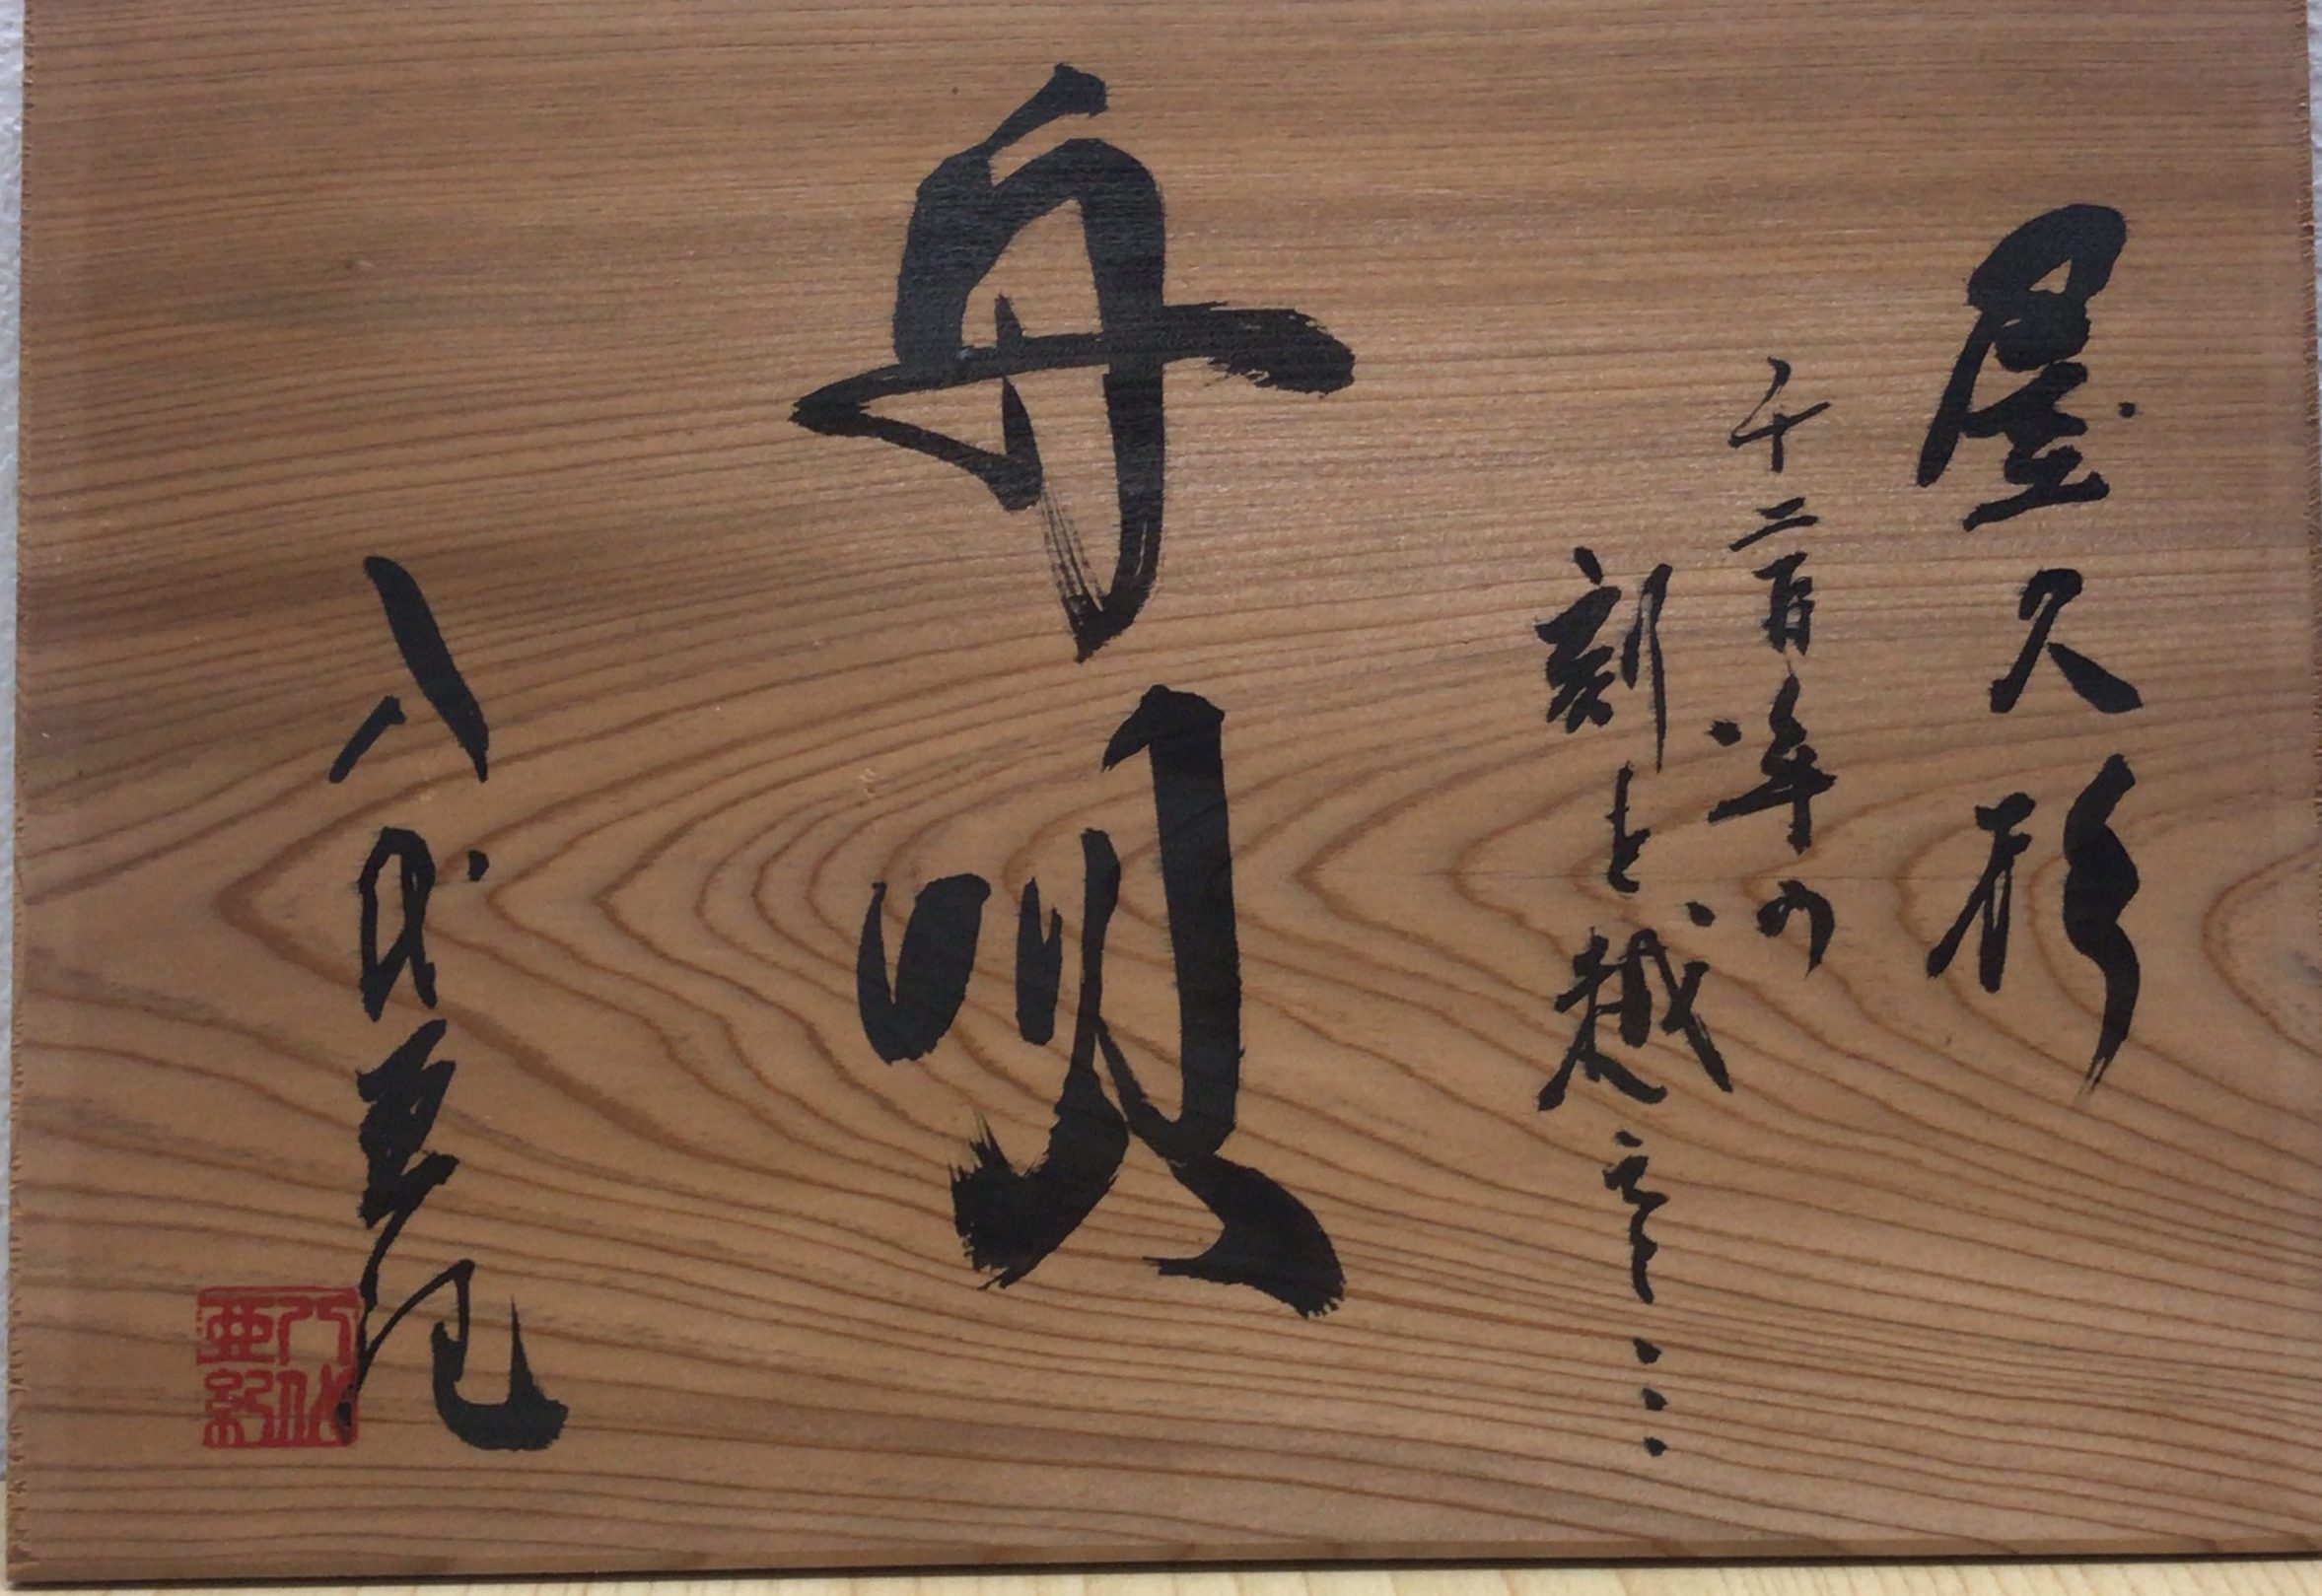 屋久杉
千二百年の
刻を越えて…
舟唄
八代亜紀
八代亜紀